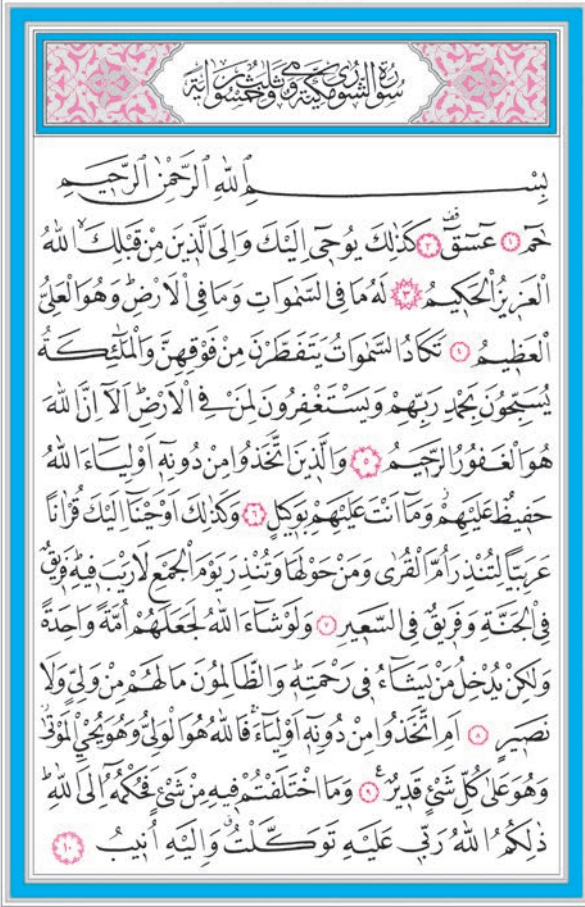 سُورَةُ الشُّورٰى مَكِّيَّةٌ وَهِيَ ثَلٰثٌ وَخَمْسُونَ اٰيَةً
بِسْــــــــــمِ اللّٰهِ الرَّحْمٰنِ الرَّحِيمِ
حٰمٓ ﴿١﴾ عٓسٓقٓ ﴿٢﴾ كَذٰلِكَ يُوحٓى اِلَيْكَ وَاِلَى الَّذِينَ مِنْ قَبْلِكَۙ اللّٰهُ
الْعَزِيزُ الْحَكِيمُ ﴿٣﴾ لَهُ مَا فِي السَّمٰوَاتِ وَمَا فِي الْاَرْضِۜ وَهُوَ الْعَلِيُّ
الْعَظِيمُ ﴿٤﴾ تَكَادُ السَّمٰوَاتُ يَتَفَطَّرْنَ مِنْ فَوْقِهِنَّ وَالْمَلٰٓئِكَةُ
يُسَبِّحُونَ بِحَمْدِ رَبِّهِمْ وَيَسْتَغْفِرُونَ لِمَنْ فِي الْاَرْضِۜ اَلَٓا اِنَّ اللّٰهَ
هُوَ الْغَفُورُ الرَّحِيمُ ﴿٥﴾ وَالَّذِينَ اتَّخَذُوا مِنْ دُونِهٓ اَوْلِيَٓاءَ اللّٰهُ
حَفِيظٌ عَلَيْهِمْۘ وَمَٓا اَنْتَ عَلَيْهِمْ بِوَكِيلٍ ﴿٦﴾ وَكَذٰلِكَ اَوْحَيْنَٓا اِلَيْكَ قُرْاٰنًا
عَرَبِيًّا لِتُنْذِرَ اُمَّ الْقُرٰى وَمَنْ حَوْلَهَا وَتُنْذِرَ يَوْمَ الْجَمْعِ لَا رَيْبَ فِيهِۜ فَرِيقٌ
فِي الْجَنَّةِ وَفَرِيقٌ فِي السَّعِيرِ ﴿٧﴾ وَلَوْ شَٓاءَ اللّٰهُ لَجَعَلَهُمْ اُمَّةً وَاحِدَةً
وَلٰكِنْ يُدْخِلُ مَنْ يَشَٓاءُ فِي رَحْمَتِهِۜ وَالظَّالِمُونَ مَا لَهُمْ مِنْ وَلِيٍّ وَلَا
نَصِيرٍ ﴿٨﴾ اَمِ اتَّخَذُوا مِنْ دُونِهٓ اَوْلِيَٓاءَۚ فَاللّٰهُ هُوَ الْوَلِيُّ وَهُوَ يُحْيِ الْمَوْتٰىۘ
وَهُوَ عَلٰى كُلِّ شَيْءٍ قَدِيرٌ۟ ﴿٩﴾ وَمَا اخْتَلَفْتُمْ فِيهِ مِنْ شَيْءٍ فَحُكْمُهُٓ اِلَى اللّٰهِۜ
ذٰلِكُمُ اللّٰهُ رَبِّي عَلَيْهِ تَوَكَّلْتُۗ وَاِلَيْهِ اُنِيبُ ﴿١٠﴾